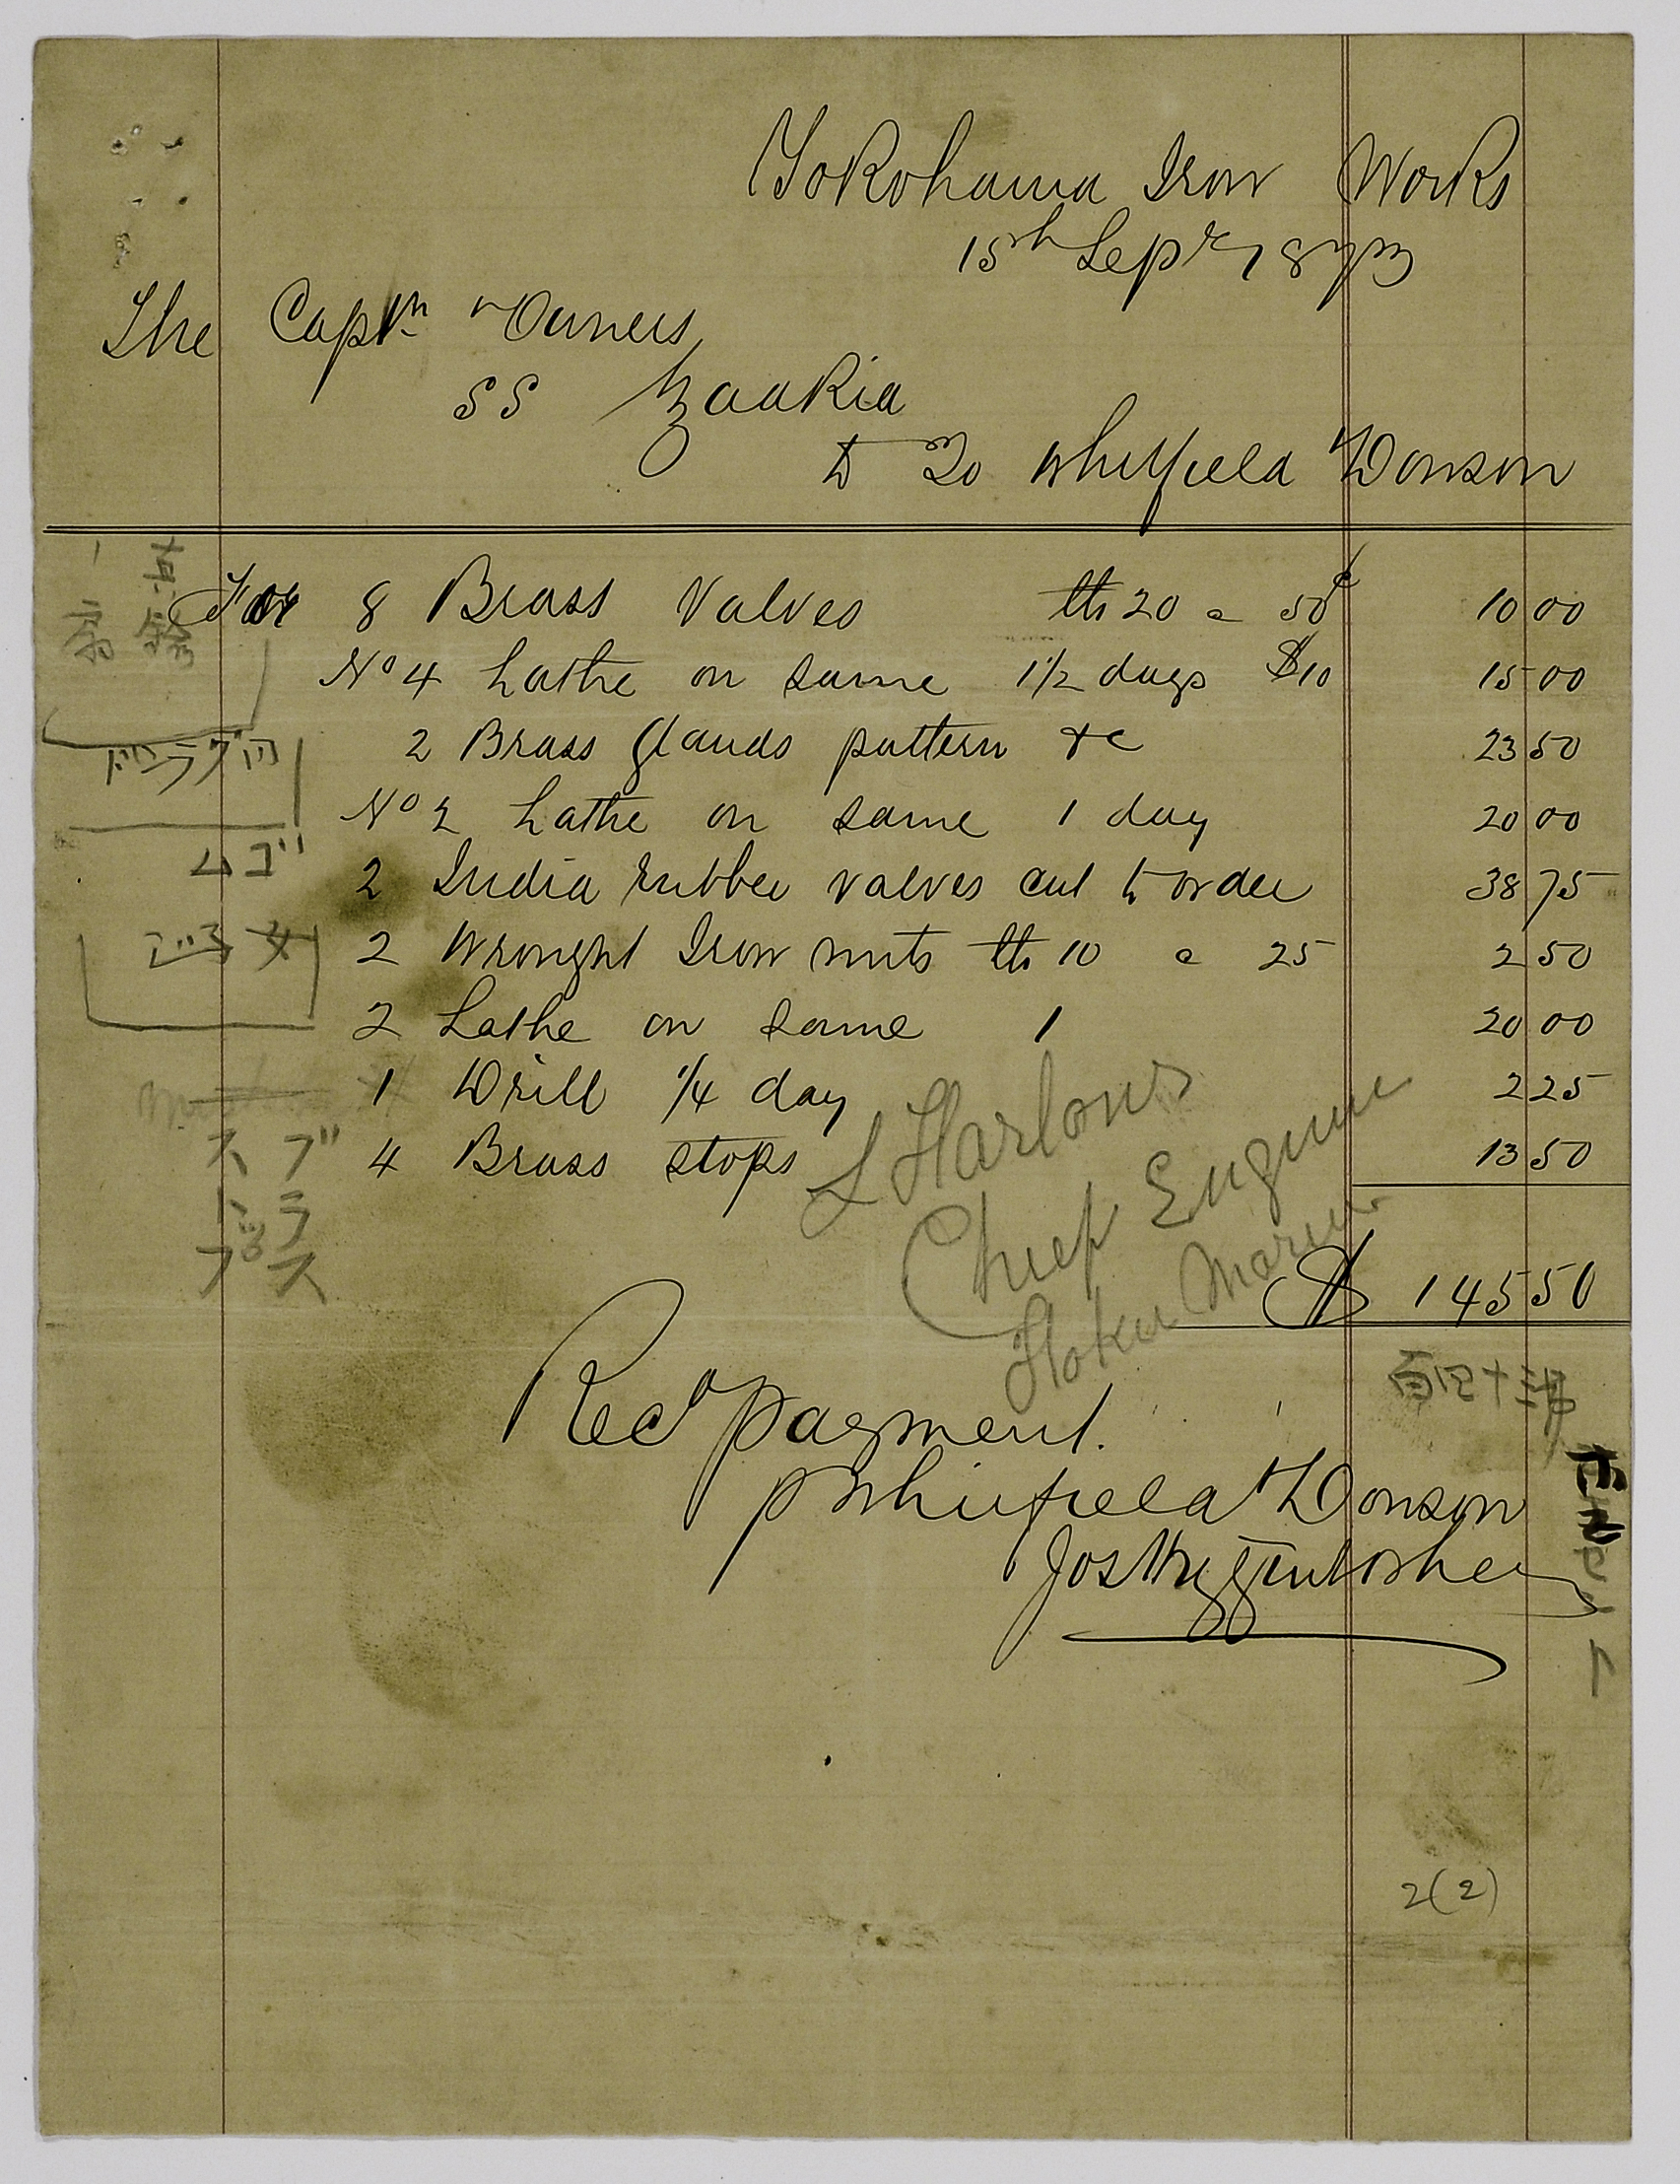 Yokohama Iron Works
15th Sepr 1873
The Captn & Owners
SS
to Whitfield & Dowson
For 8 Brass Valves lbs 20 a 50c 10 00
No 4 Lathe on same 1 1/2 days $10 15 00
2 Brass Glands pattern &c 23 50
No 2 Lathe on same 1 day 20 00
2 India rubber valves cut to order 38 75
2 Wrought Iron nuts lbs 10 a 25 2 50
2 Lathe on same 1 20 00
1 Drill 1/4 day 2 25
4 Brass stops 13 50
Chief Engineer
Maru
$ 145 50
Recd payment.
p Whitfield & Dowson
ゴム
ブラス
百四十三
2(2)